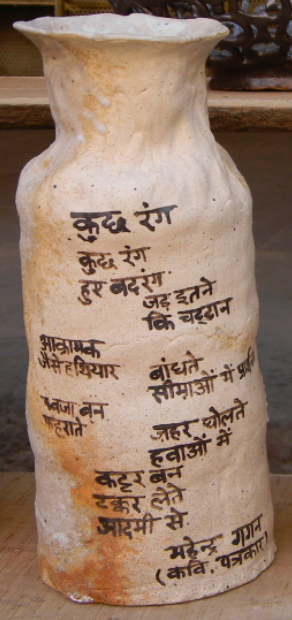 कुछ रंग
कुछ रंग
हुए बदरंग
जड़ इतने
कि चट्टान
आक्रामक
जैसे हथियार
बांधते
सीमाओं में
ध्वजा बन
फहराते
ज़हर घोलते
हवाओं में
कट्टर बन
टक्कर लेते
आदमी से
महेन्द्र गगन
(कवि, पत्रकार)